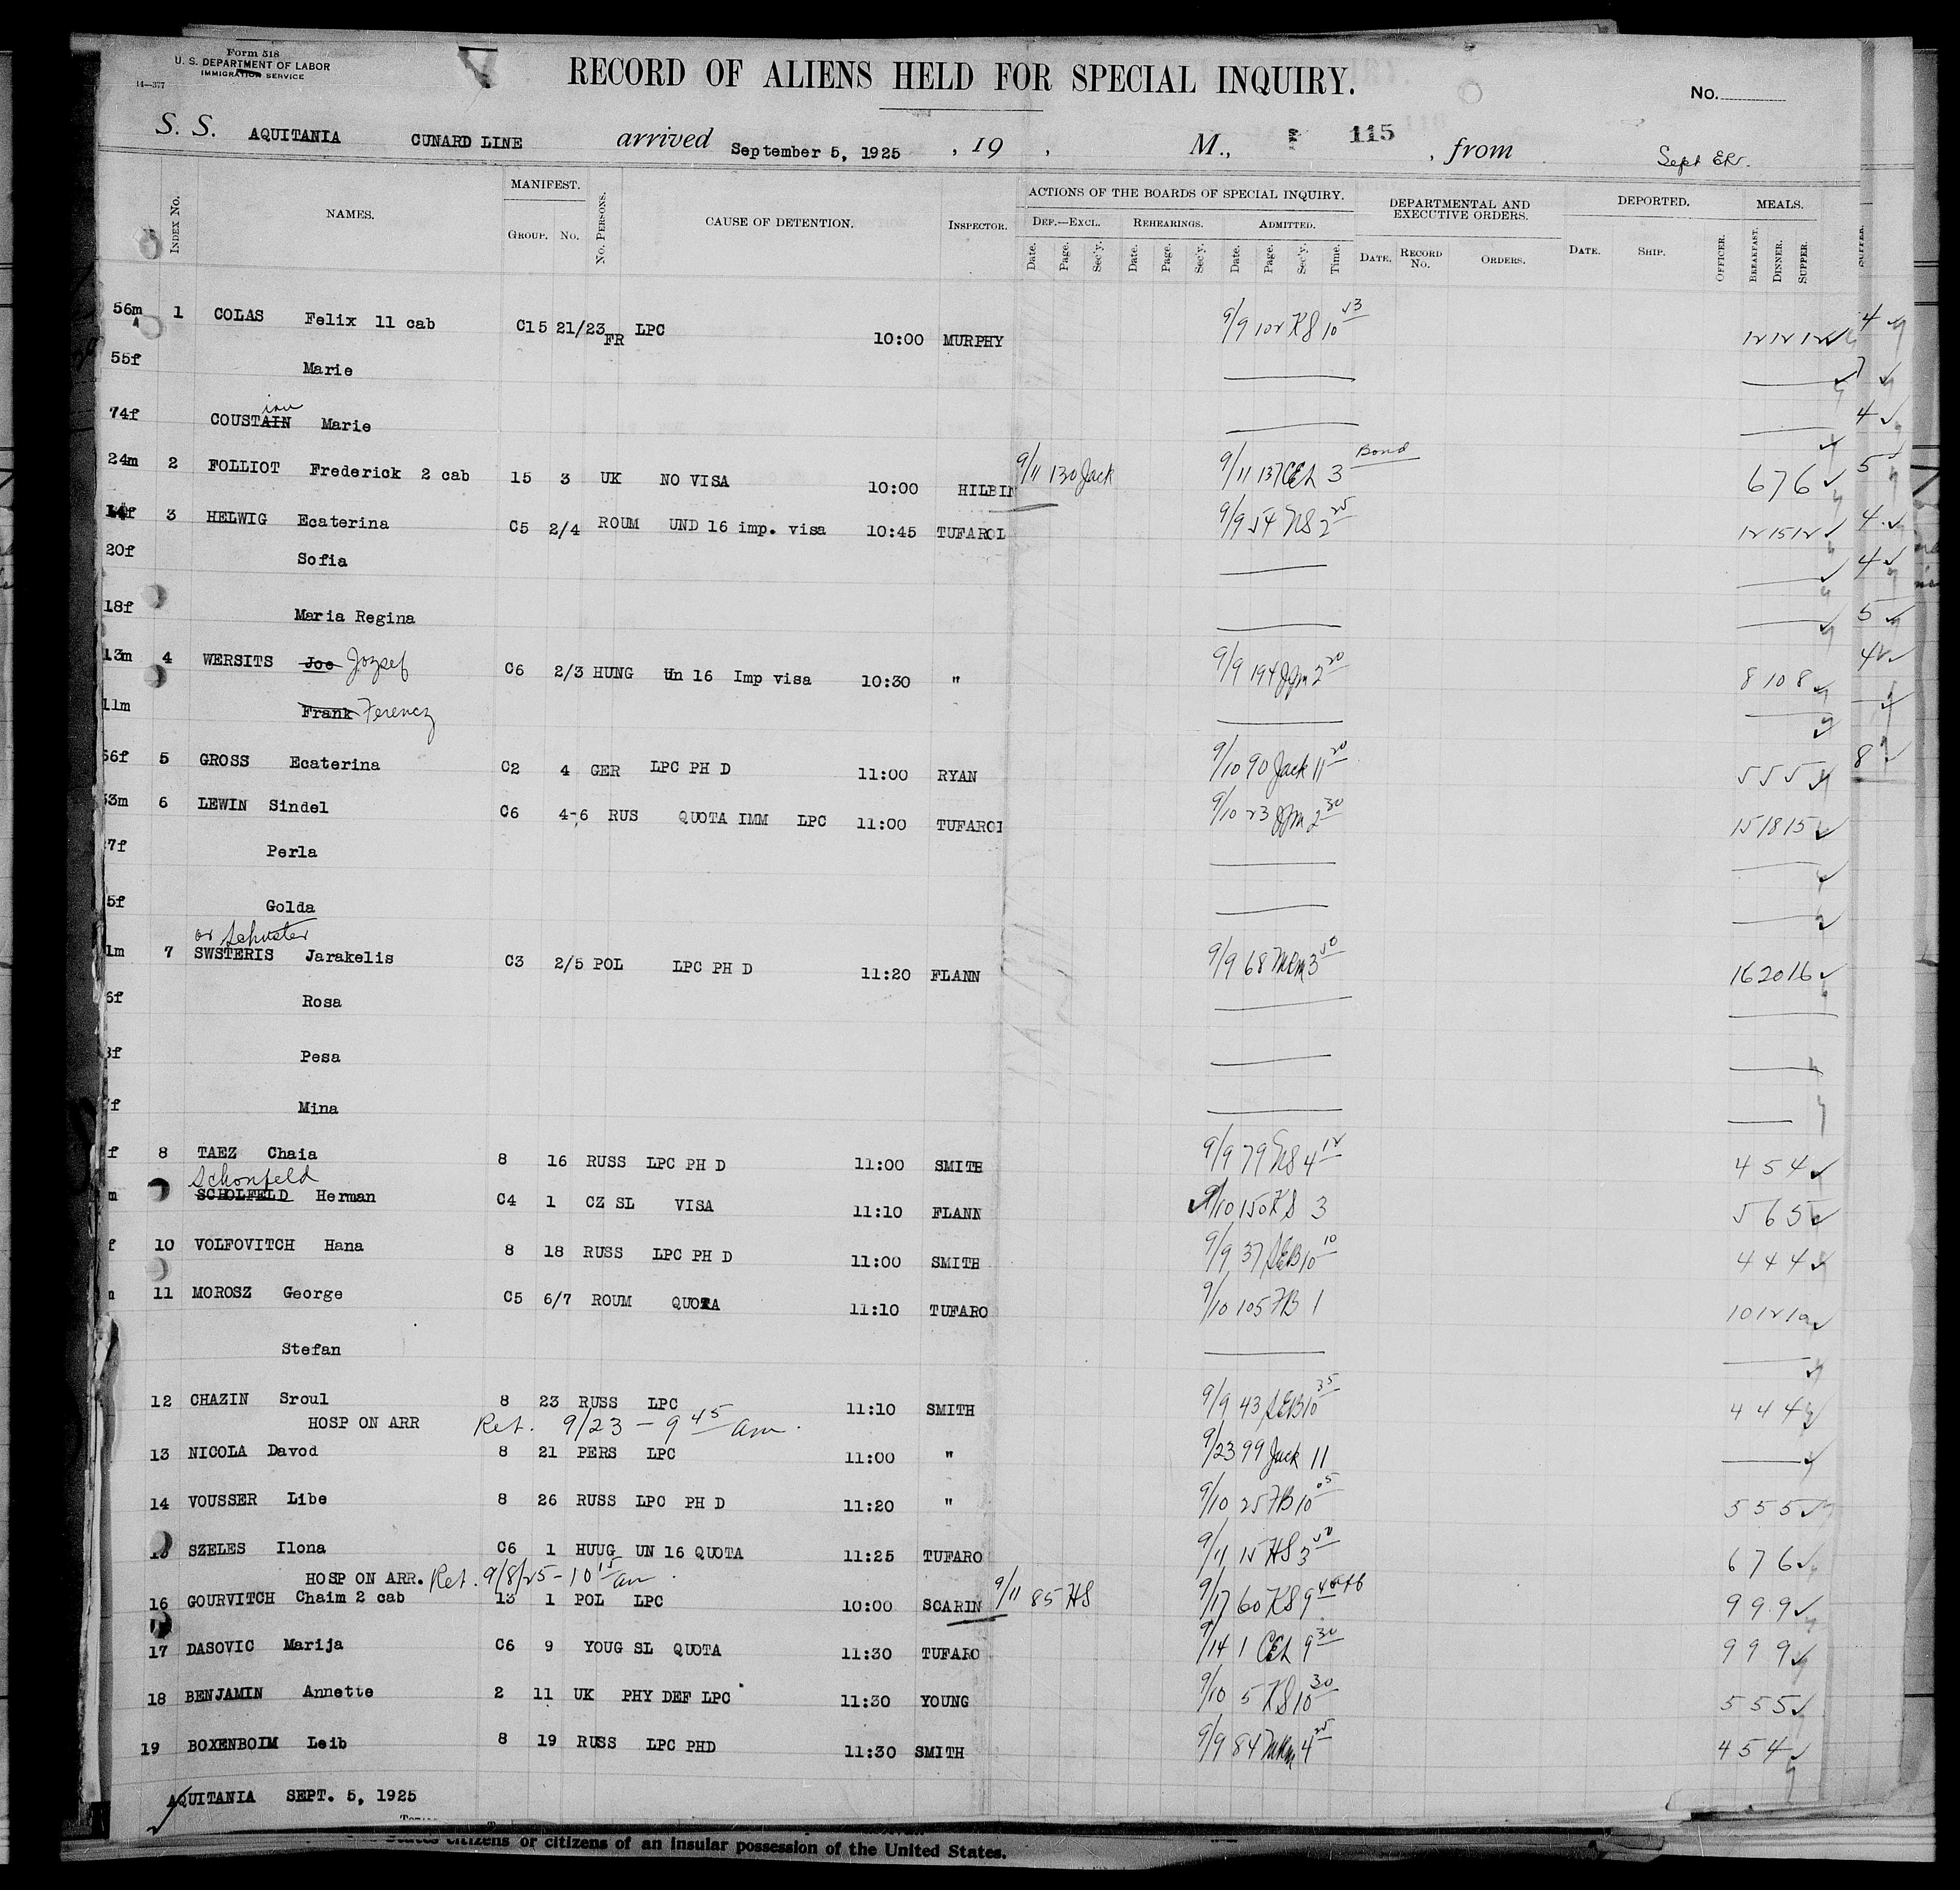 Form 518
U. S. DEPARTMENT OF LABOR
IMMIGRATION SERVICE
14—377
RECORD OF ALIENS HELD FOR SPECIAL INQUIRY.
No.
S. S. AQUITANIA CUNARD LINE arrived September 5, 1925 , 19 , M., 115 , from Sept
INDEX No. NAMES. MANIFEST. GROUP. No. No. PERSONS. CAUSE OF DETENTION. INSPECTOR. ACTIONS OF THE BOARDS OF SPECIAL INQUIRY. DEF.—EXCL. Date. Page. Sec'y. REHEARINGS. Date. Page. Sec'y. ADMITTED. Date. Page. Sec'y. Time. DEPARTMENTAL AND EXECUTIVE ORDERS. DATE. RECORD No. ORDERS. DEPORTED. DATE. SHIP. OFFICER. MEALS. BREAKFAST. DINNER. SUPPER.
56m 1 COLAS Felix 11 cab C15 21/23 FR LPC 10:00 MURPHY 9/9 102 KS 10 53 12 12 12 4
55f Marie
74f COUSTAIN Marie 4
24m 2 FOLLIOT Frederick 2 cab 15 3 UK NO VISA 10:00 HILBIN 9/11 130 Jack 9/11 137 CEL 3 Bond 6 7 6 5
3 HELWIG Ecaterina C5 2/4 ROUM UND 16 imp. visa 10:45 TUFAROL 9/9 54 2 25 12 15 12 4
20f Sofia 4
18f Maria Regina 5
13m 4 WERSITS Joe Jozsef C6 2/3 HUNG Un 16 Imp visa 10:30 " 9/9 194 JJM 2 20 8 10 8
11m Frank Ferencz
56f 5 GROSS Ecaterina C2 4 GER LPC PH D 11:00 RYAN 9/10 90 Jack 11 20 5 5 5 8
53m 6 LEWIN Sindel C6 4-6 RUS QUOTA IMM LPC 11:00 TUFAROI 9/10 23 JJM 2 30 15 18 15
7f Perla
5f Golda
or Schuster
1m 7 SWSTERIS Jarakelis C3 2/5 POL LPC PH D 11:20 FLANN 9/9 68 MRM 3 50 16 20 16
6f Rosa
f Pesa
f Mina
f 8 TAEZ Chaia 8 16 RUSS LPC PH D 11:00 SMITH 9/9 79 4 12 4 5 4
Schonfeld
m SCHOLFELD Herman C4 1 CZ SL VISA 11:10 FLANN 9/10 150 KS 3 5 6 5
f 10 VOLFOVITCH Hana 8 18 RUSS LPC PH D 11:00 SMITH 9/9 37 SEB 10 10 4 4 4
11 MOROSZ George C5 6/7 ROUM QUOTA 11:10 TUFARO 9/10 105 FB 1 10 12 10
Stefan
12 CHAZIN Sroul 8 23 RUSS LPC 11:10 SMITH 9/9 43 SEB 10 35 4 4 4
HOSP ON ARR Ret. 9/23 – 9 45 am.
13 NICOLA Davod 8 21 PERS LPC 11:00 " 9/23 99 Jack 11
14 VOUSSER Libe 8 26 RUSS LPC PH D 11:20 " 9/10 25 FB 10 05 5 5 5
15 SZELES Ilona C6 1 HUUG UN 16 QUOTA 11:25 TUFARO 9/11 15 HS 3 50 6 7 6
HOSP ON ARR. Ret. 9/8/25 – 10 15 am.
16 GOURVITCH Chaim 2 cab 13 1 POL LPC 10:00 SCARIN 9/11 85 HS 9/17 60 KS 9 9 9 9
17 DASOVIC Marija C6 9 YOUG SL QUOTA 11:30 TUFARO 9/14 1 CEL 9 30 9 9 9
18 BENJAMIN Annette 2 11 UK PHY DEF LPC 11:30 YOUNG 9/10 5 KS 10 30 5 5 5
19 BOXENBOIM Leib 8 19 RUSS LPC PHD 11:30 SMITH 9/9 84 MRM 4 25 4 5 4
AQUITANIA SEPT. 5, 1925
States citizens or citizens of an insular possession of the United States.